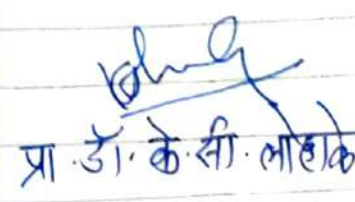 प्रा. डॉ. के. सी. लोहाके